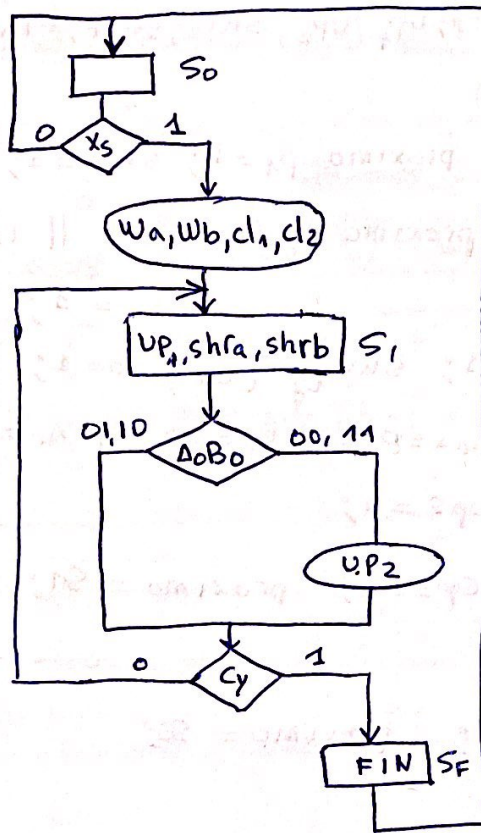 S0
0 Xs 1
Wa, Wb, cl1, cl2
UP1, shra, shrb S1
01,10 A0B0 00, 11
UP2
0 Cy 1
FIN SF